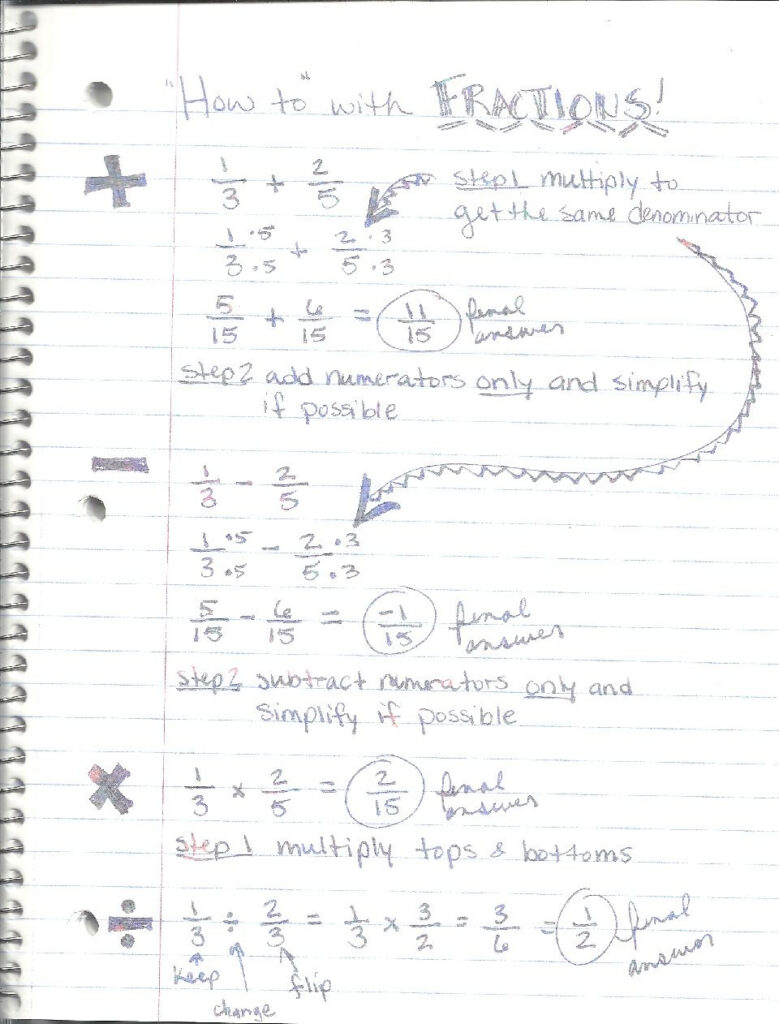 "How to" with FRACTIONS!
+ 1/3 + 2/5 step 1 multiply to
get the same denominator
1·5/3·5 + 2·3/5·3
5/15 + 6/15 = 11/15 final answer
step 2 add numerators only and simplify
if possible
− 1/3 - 2/5
1·5/3·5 - 2·3/5·3
5/15 - 6/15 = -1/15 final answer
step 2 subtract numerators only and
simplify if possible
× 1/3 × 2/5 = 2/15 final answer
step 1 multiply tops & bottoms
÷ 1/3 ÷ 2/3 = 1/3 × 3/2 = 3/6 = 1/2 final answer
keep change flip